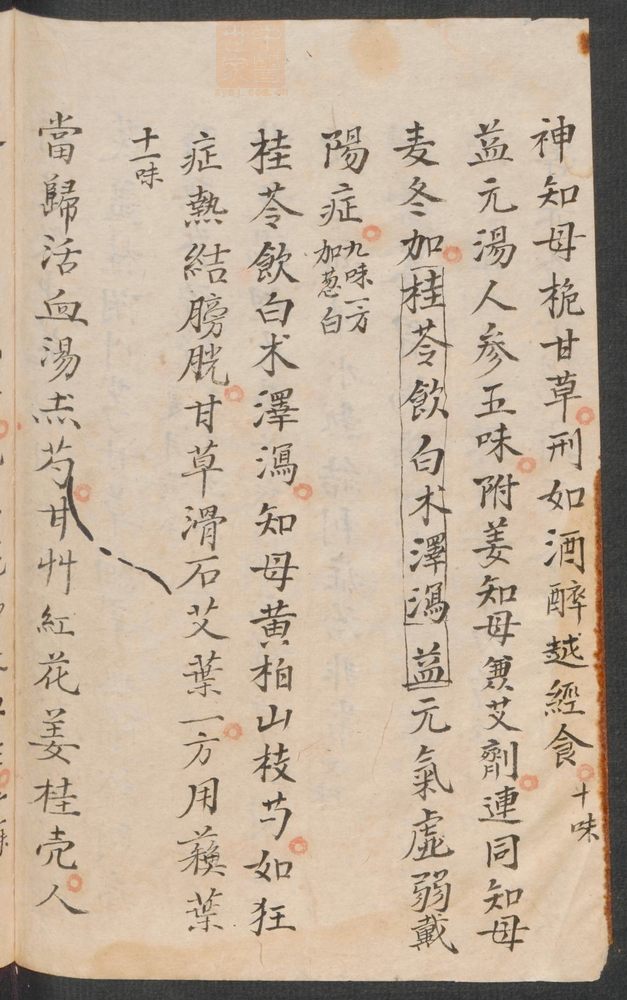 神知母桅甘草刑如酒醉越經食十味
益元湯人參五味附姜知母兼艾劑連同知母
麦冬加桂苓飲白术澤瀉益元氣虛弱戴
陽症九味一方加葱白
桂苓飲白术澤瀉知母黄柏山枝芍如狂
症熱結膀胱甘草滑石艾葉一方用蘓葉
十一味
當歸活血湯赤芍甘艸紅花姜桂壳人